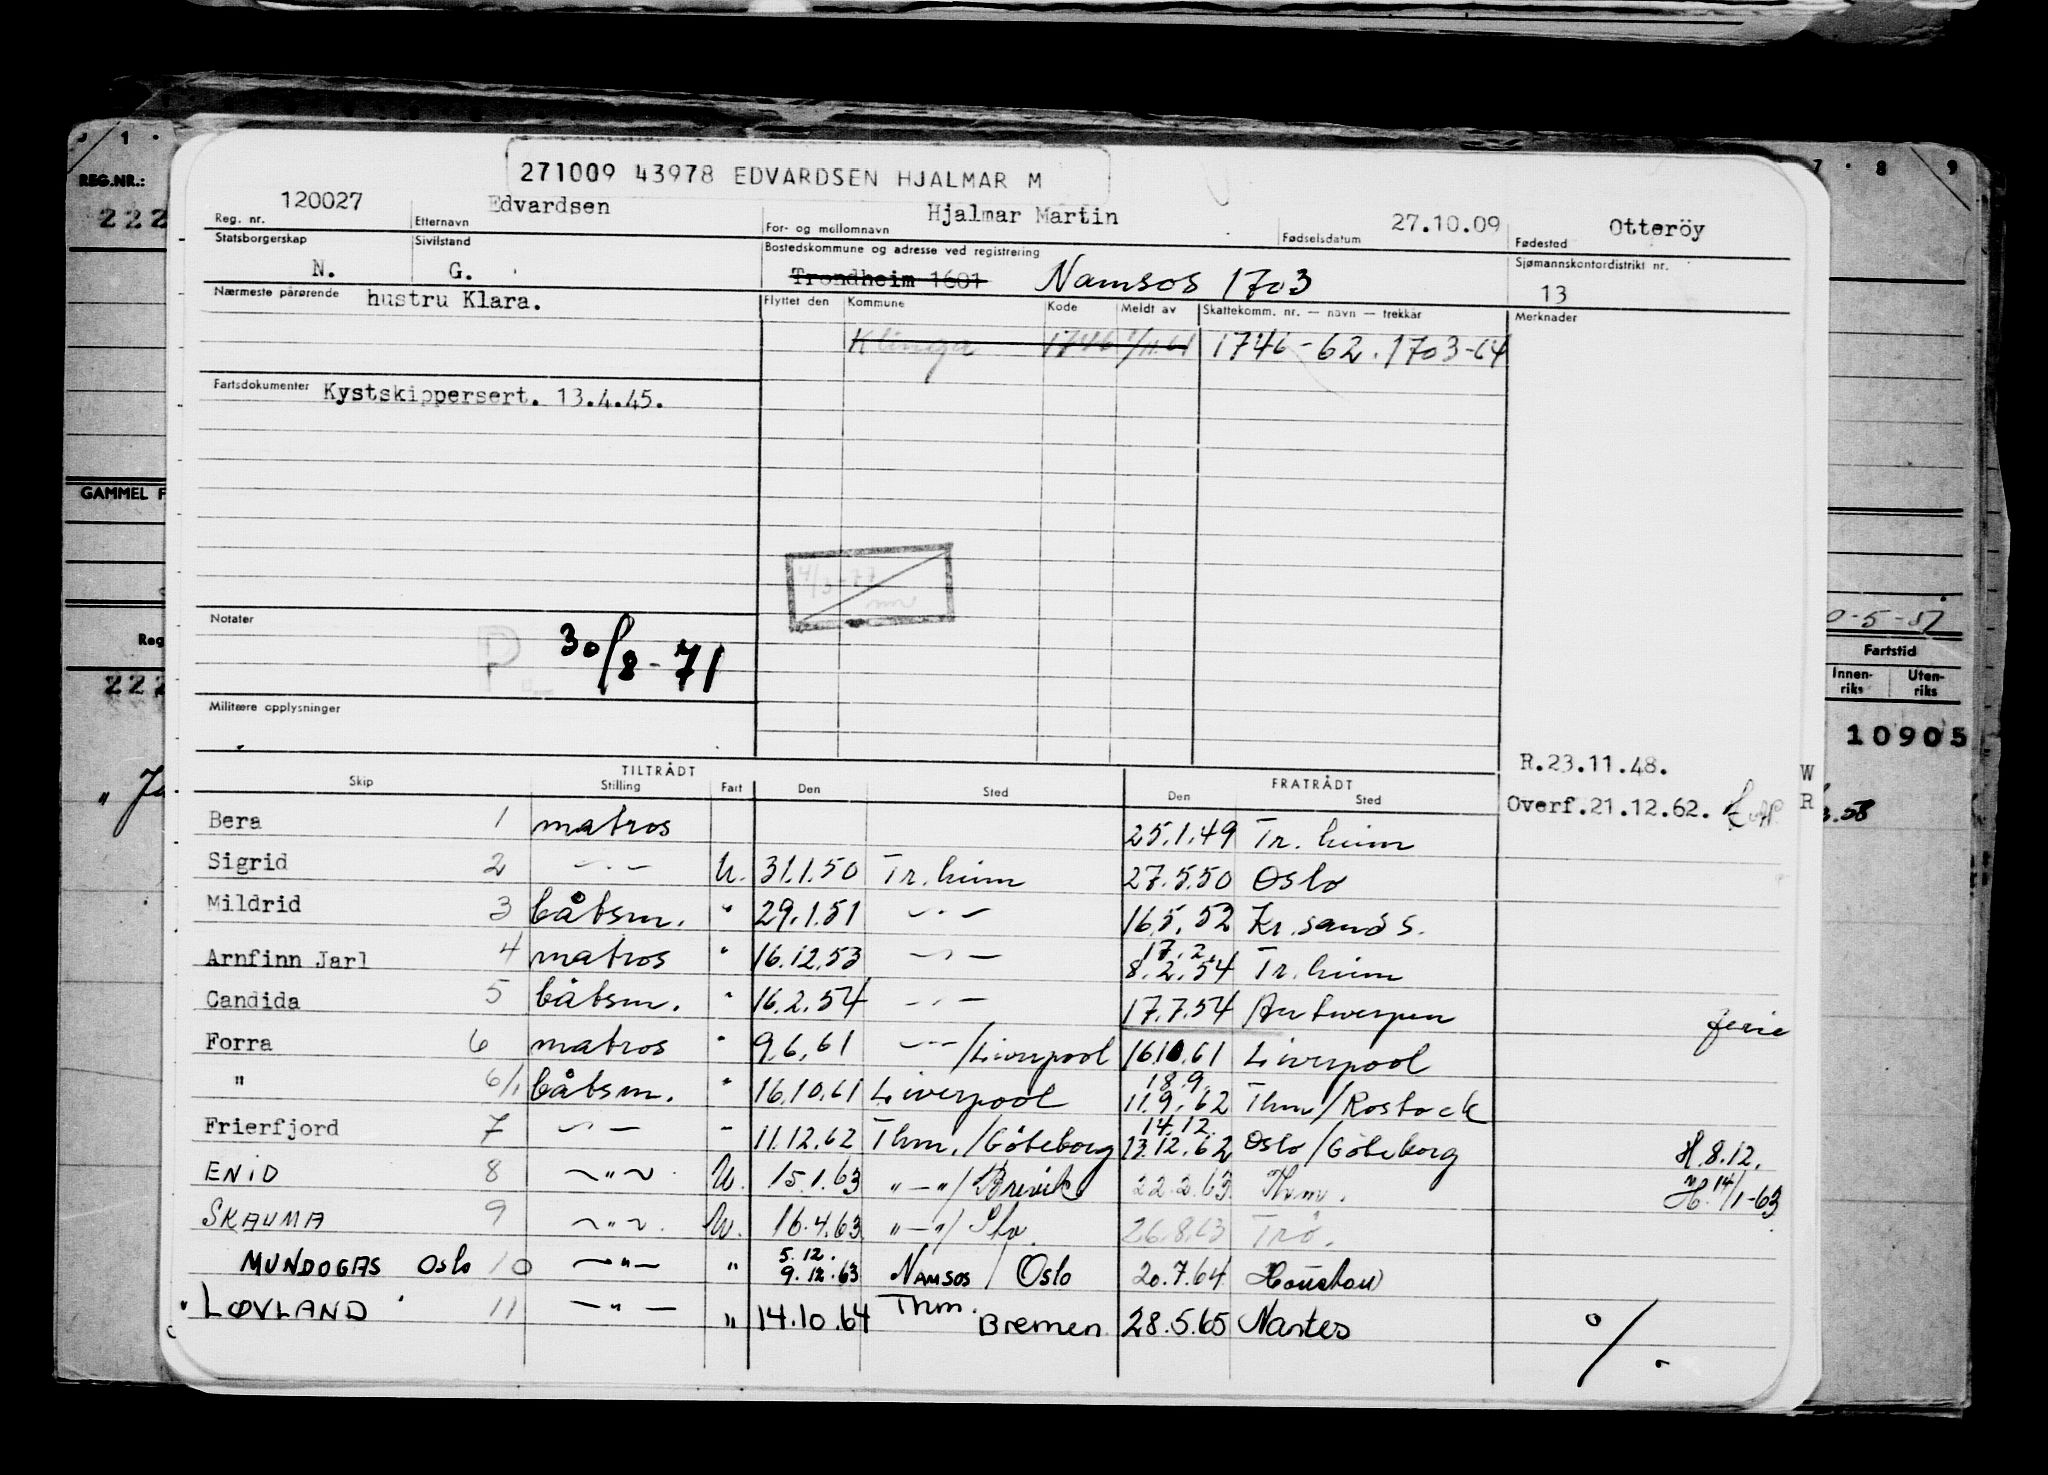 271009 43978 EDVARDSEN HJALMAR M
REG.NR.:
Reg. nr. 120027 Etternavn Edvardsen For- og mellomnavn Hjalmar Martin Fødselsdatum 27.10.09 Fødested Otteröy
Statsborgerskap N. Sivilstand G. Bostedskommune og adresse ved registrering Trondheim 1601 Namsos 1703 Sjømannskontordistrikt nr. 13
Nærmeste pårørende hustru Klara. Flyttet den Kommune Kode Meldt av Skattekomm. nr. — navn — trekkår Merknader
Klinga 1746 1/11.61 1746-62. 1703-64
Fartsdokumenter Kystskippersert. 13.4.45.
GAMMEL F
Notater P 30/8-71
Militære opplysninger
0-5-57
Fartstid
Innen-riks Uten-riks
10905
R.23.11.48. W
Overf.21.12.62. R
TILTRÅDT FRATRÅDT
Skip Stilling Fart Den Sted Den Sted
Bera 1 matros 25.1.49 Tr. heim
Sigrid 2 —"— U. 31.1.50 Tr. heim 27.5.50 Oslo
Mildrid 3 båtsm. " 29.1.51 —"— 16.5.52 Kr. sand s.
17.2.
Arnfinn Jarl 4 matros " 16.12.53 —"— 8.2.54 Tr. heim
Candida 5 båtsm. " 16.2.54 —"— 17.7.54 Antwerpen ferie
Forra 6 matros " 9.6.61 —"—/Liverpool 16.10.61 Liverpool
18.9.
" 6/1 båtsm. " 16.10.61 Liverpool 11.9.62 Thm/Rostock
14.12.
Frierfjord 7 —"— — 11.12.62 Thm./Göteborg 13.12.62 Oslo/Göteborg H.8.12.
ENID 8 —"— U. 15.1.63 "—"/Brevik 22.2.63 Thm. H. 14/1-63
SKAUMA 9 —"— U. 16.4.63 "—"/ 26.8.63 Trå.
5.12.
MUNDOGAS Oslo 10 —"— " 9.12.63 Namsos / Oslo 20.7.64 Houston
"LØVLAND" 11 —"— " 14.10.64 Thm. Bremen 28.5.65 Nantes